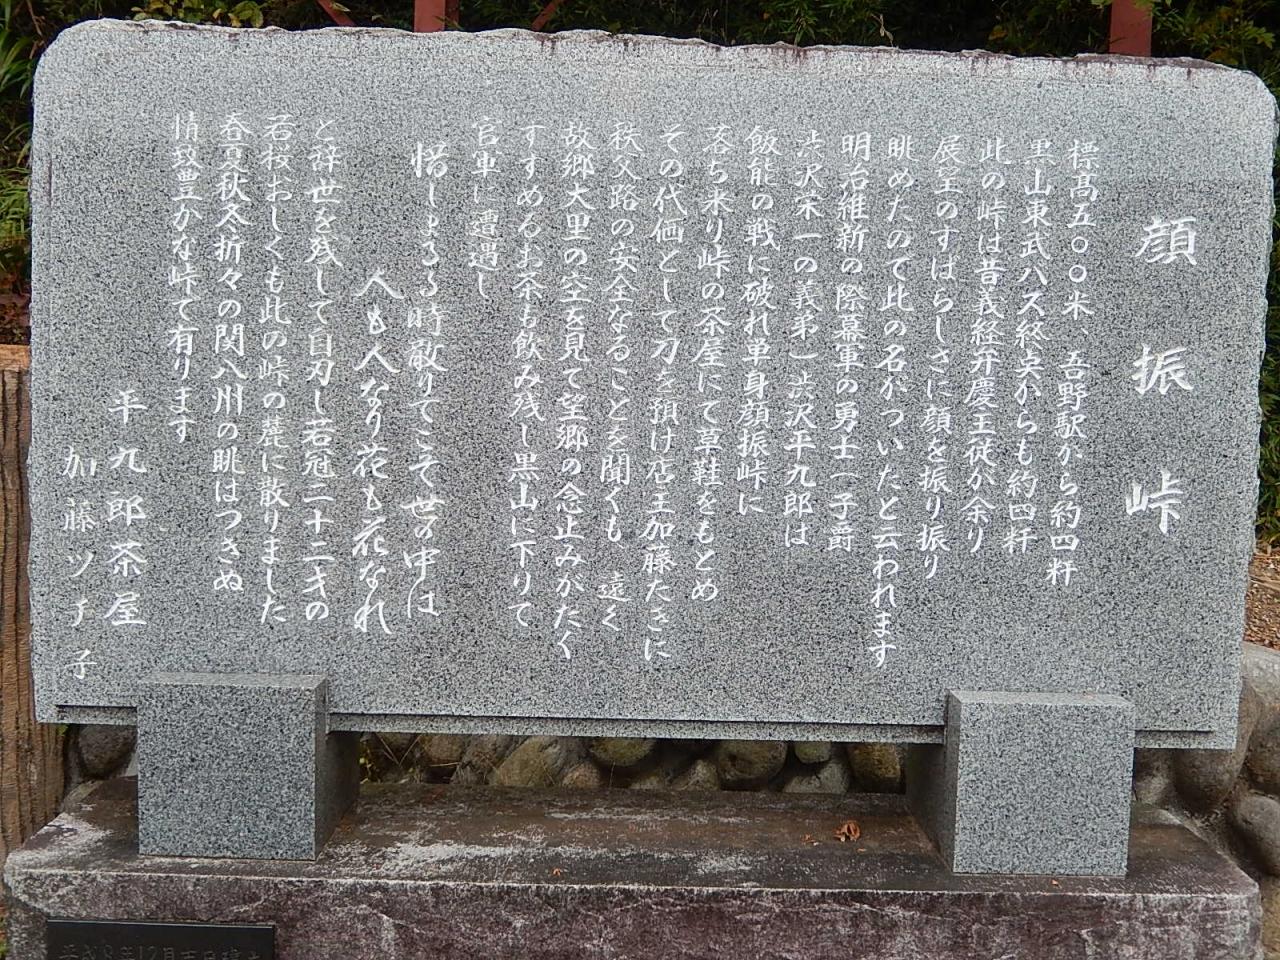 顔振峠
標高五〇〇米、吾野駅から約四粁
黒山東武バス終点からも約四粁
此の峠は昔義経弁慶主従が余り
展望のすばらしさに顔を振り振り
眺めたので此の名がついたと云われます
明治維新の際幕軍の勇士（子爵
渋沢栄一の義弟）渋沢平九郎は
飯能の戦に破れ単身顔振峠に
落ち来り峠の茶屋にて草鞋をもとめ
その代価として刀を預け店主加藤たきに
秩父路の安全なることを聞くも、遠く
故郷大里の空を見て望郷の念止みがたく
すすめるお茶も飲み残し黒山に下りて
官軍に遭遇し
惜しまるる時散りてこそ世の中は
人も人なり花も花なれ
と辞世を残して自刃し若冠二十二才の
若桜おしくも此の峠の麓に散りました
春夏秋冬折々の関八州の眺はつきぬ
情致豊かな峠で有ります
平九郎茶屋
加藤ツチ子